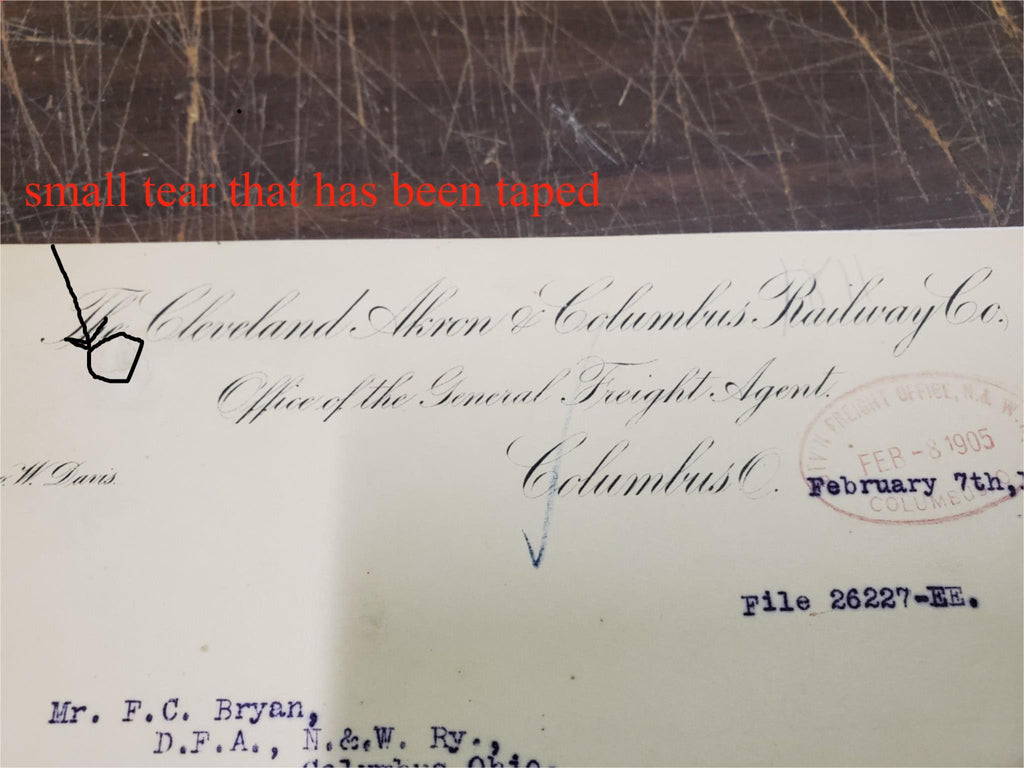 small tear that has been taped
The Cleveland Akron & Columbus Railway Co.
Office of the General Freight Agent.
W. Davis.
Columbus O.
FREIGHT OFFICE, N. & W.
FEB - 8 1905
COLUMBUS
February 7th,
File 26227-EE.
Mr. F.C. Bryan,
D.F.A., N.&.W. Ry.,
Columbus Ohio.